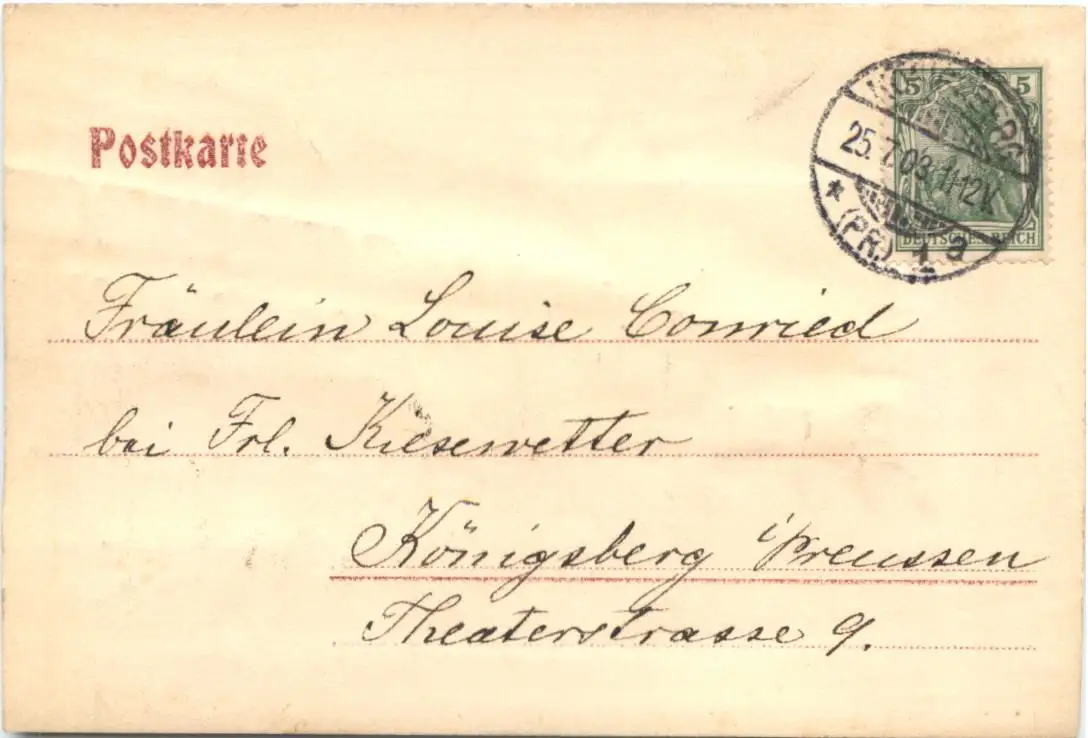 Postkarte
5 5
25.7.03.11-12V.
* (PR.) 1 a
DEUTSCHES REICH
Fräulein Louise Conried
bei Frl. Kiesewetter
Königsberg i/Preussen
Theaterstrasse 9.